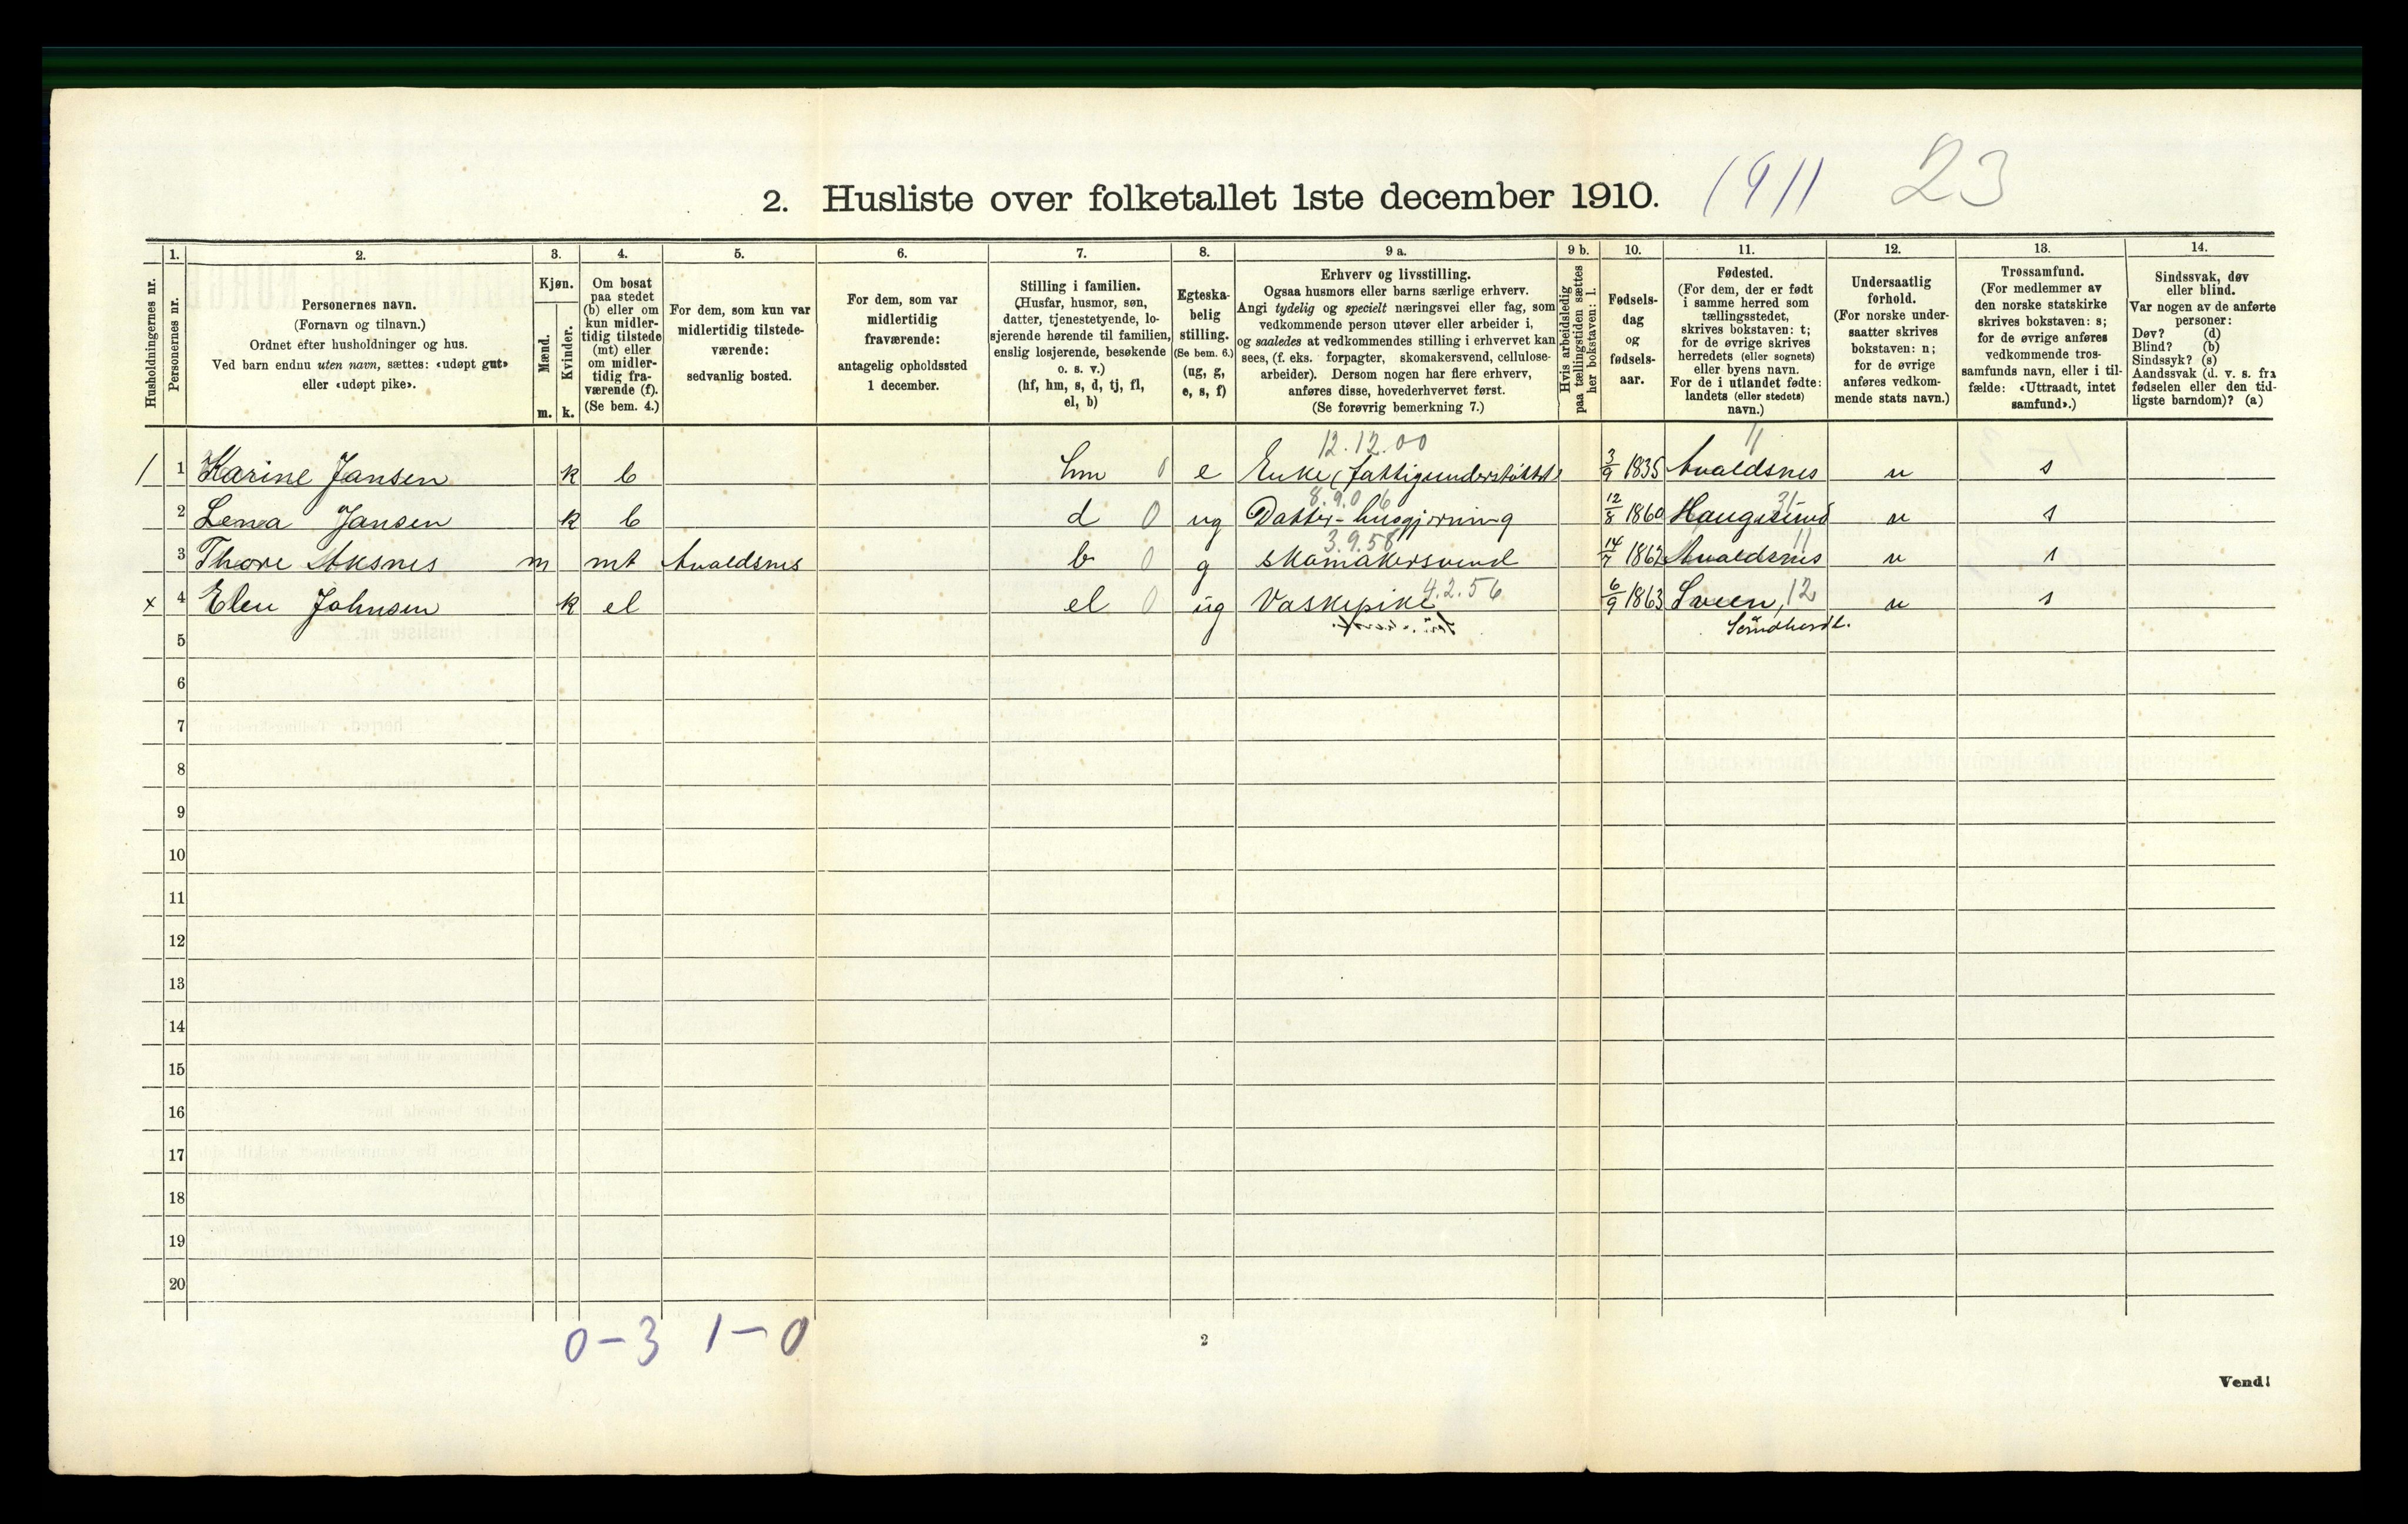 2. Husliste over folketallet 1ste december 1910. 1911 23
Husholdningernes nr.
1.
Personernes nr.
2.
Personernes navn.
(Fornavn og tilnavn.)
Ordnet efter husholdninger og hus.
Ved barn endnu uten navn, sættes: «udøpt gut»
eller «udøpt pike».
3.
Kjøn.
Mænd.
Kvinder.
m. k.
4.
Om bosat
paa stedet
(b) eller om
kun midler-
tidig tilstede
(mt) eller
om midler-
tidig fra-
værende (f).
(Se bem. 4.)
5.
For dem, som kun var
midlertidig tilstede-
værende:
sedvanlig bosted.
6.
For dem, som var
midlertidig
fraværende:
antagelig opholdssted
1 december.
7.
Stilling i familien.
(Husfar, husmor, søn,
datter, tjenestetyende, lo-
sjerende hørende til familien,
enslig losjerende, besøkende
o. s. v.)
(hf, hm, s, d, tj, fl,
el, b)
8.
Egteska-
belig
stilling.
(Se bem. 6.)
(ug, g,
e, s, f)
9 a.
Erhverv og livsstilling.
Ogsaa husmors eller barns særlige erhverv.
Angi tydelig og specielt næringsvei eller fag, som
vedkommende person utøver eller arbeider i,
og saaledes at vedkommendes stilling i erhvervet kan
sees, (f. eks. forpagter, skomakersvend, cellulose-
arbeider). Dersom nogen har flere erhverv,
anføres disse, hovederhvervet først.
(Se forøvrig bemerkning 7.)
9 b.
Hvis arbeidsledig
paa tællingstiden sættes
her bokstaven: l.
10.
Fødsels-
dag
og
fødsels-
aar.
11.
Fødested.
(For dem, der er født
i samme herred som
tællingsstedet,
skrives bokstaven: t;
for de øvrige skrives
herredets (eller sognets)
eller byens navn.
For de i utlandet fødte:
landets (eller stedets)
navn.)
12.
Undersaatlig
forhold.
(For norske under-
saatter skrives
bokstaven: n;
for de øvrige
anføres vedkom-
mende stats navn.)
13.
Trossamfund.
(For medlemmer av
den norske statskirke
skrives bokstaven: s;
for de øvrige anføres
vedkommende tros-
samfunds navn, eller i til-
fælde: «Uttraadt, intet
samfund».)
14.
Sindssvak, døv
eller blind.
Var nogen av de anførte
personer:
Døv? (d)
Blind? (b)
Sindssyk? (s)
Aandssvak (d. v. s. fra
fødselen eller den tid-
ligste barndom)? (a)
12.12.00 11
1 1 Karine Jansen k b hm 0 e Enke (fattigunderstøttet) 3/9 1835 Avaldsnes n s
8.9.06 31
2 Lena Jansen k b d 0 ug Datter - husgjerning 12/8 1860 Haugesund n s
3.9.58 11
3 Thore Aksnes m mt Avaldsnes b 0 g skomakersvend 14/7 1862 Avaldsnes n s
x 4 Elen Johnsen k el el 0 ug Vaskepike 4.2.56 6/9 1863 Sveen, 12 n s
Søndhordl.
5
6
7
8
9
10
11
12
13
14
15
16
17
18
19
20
0 – 3 1 – 0
2
Vend!